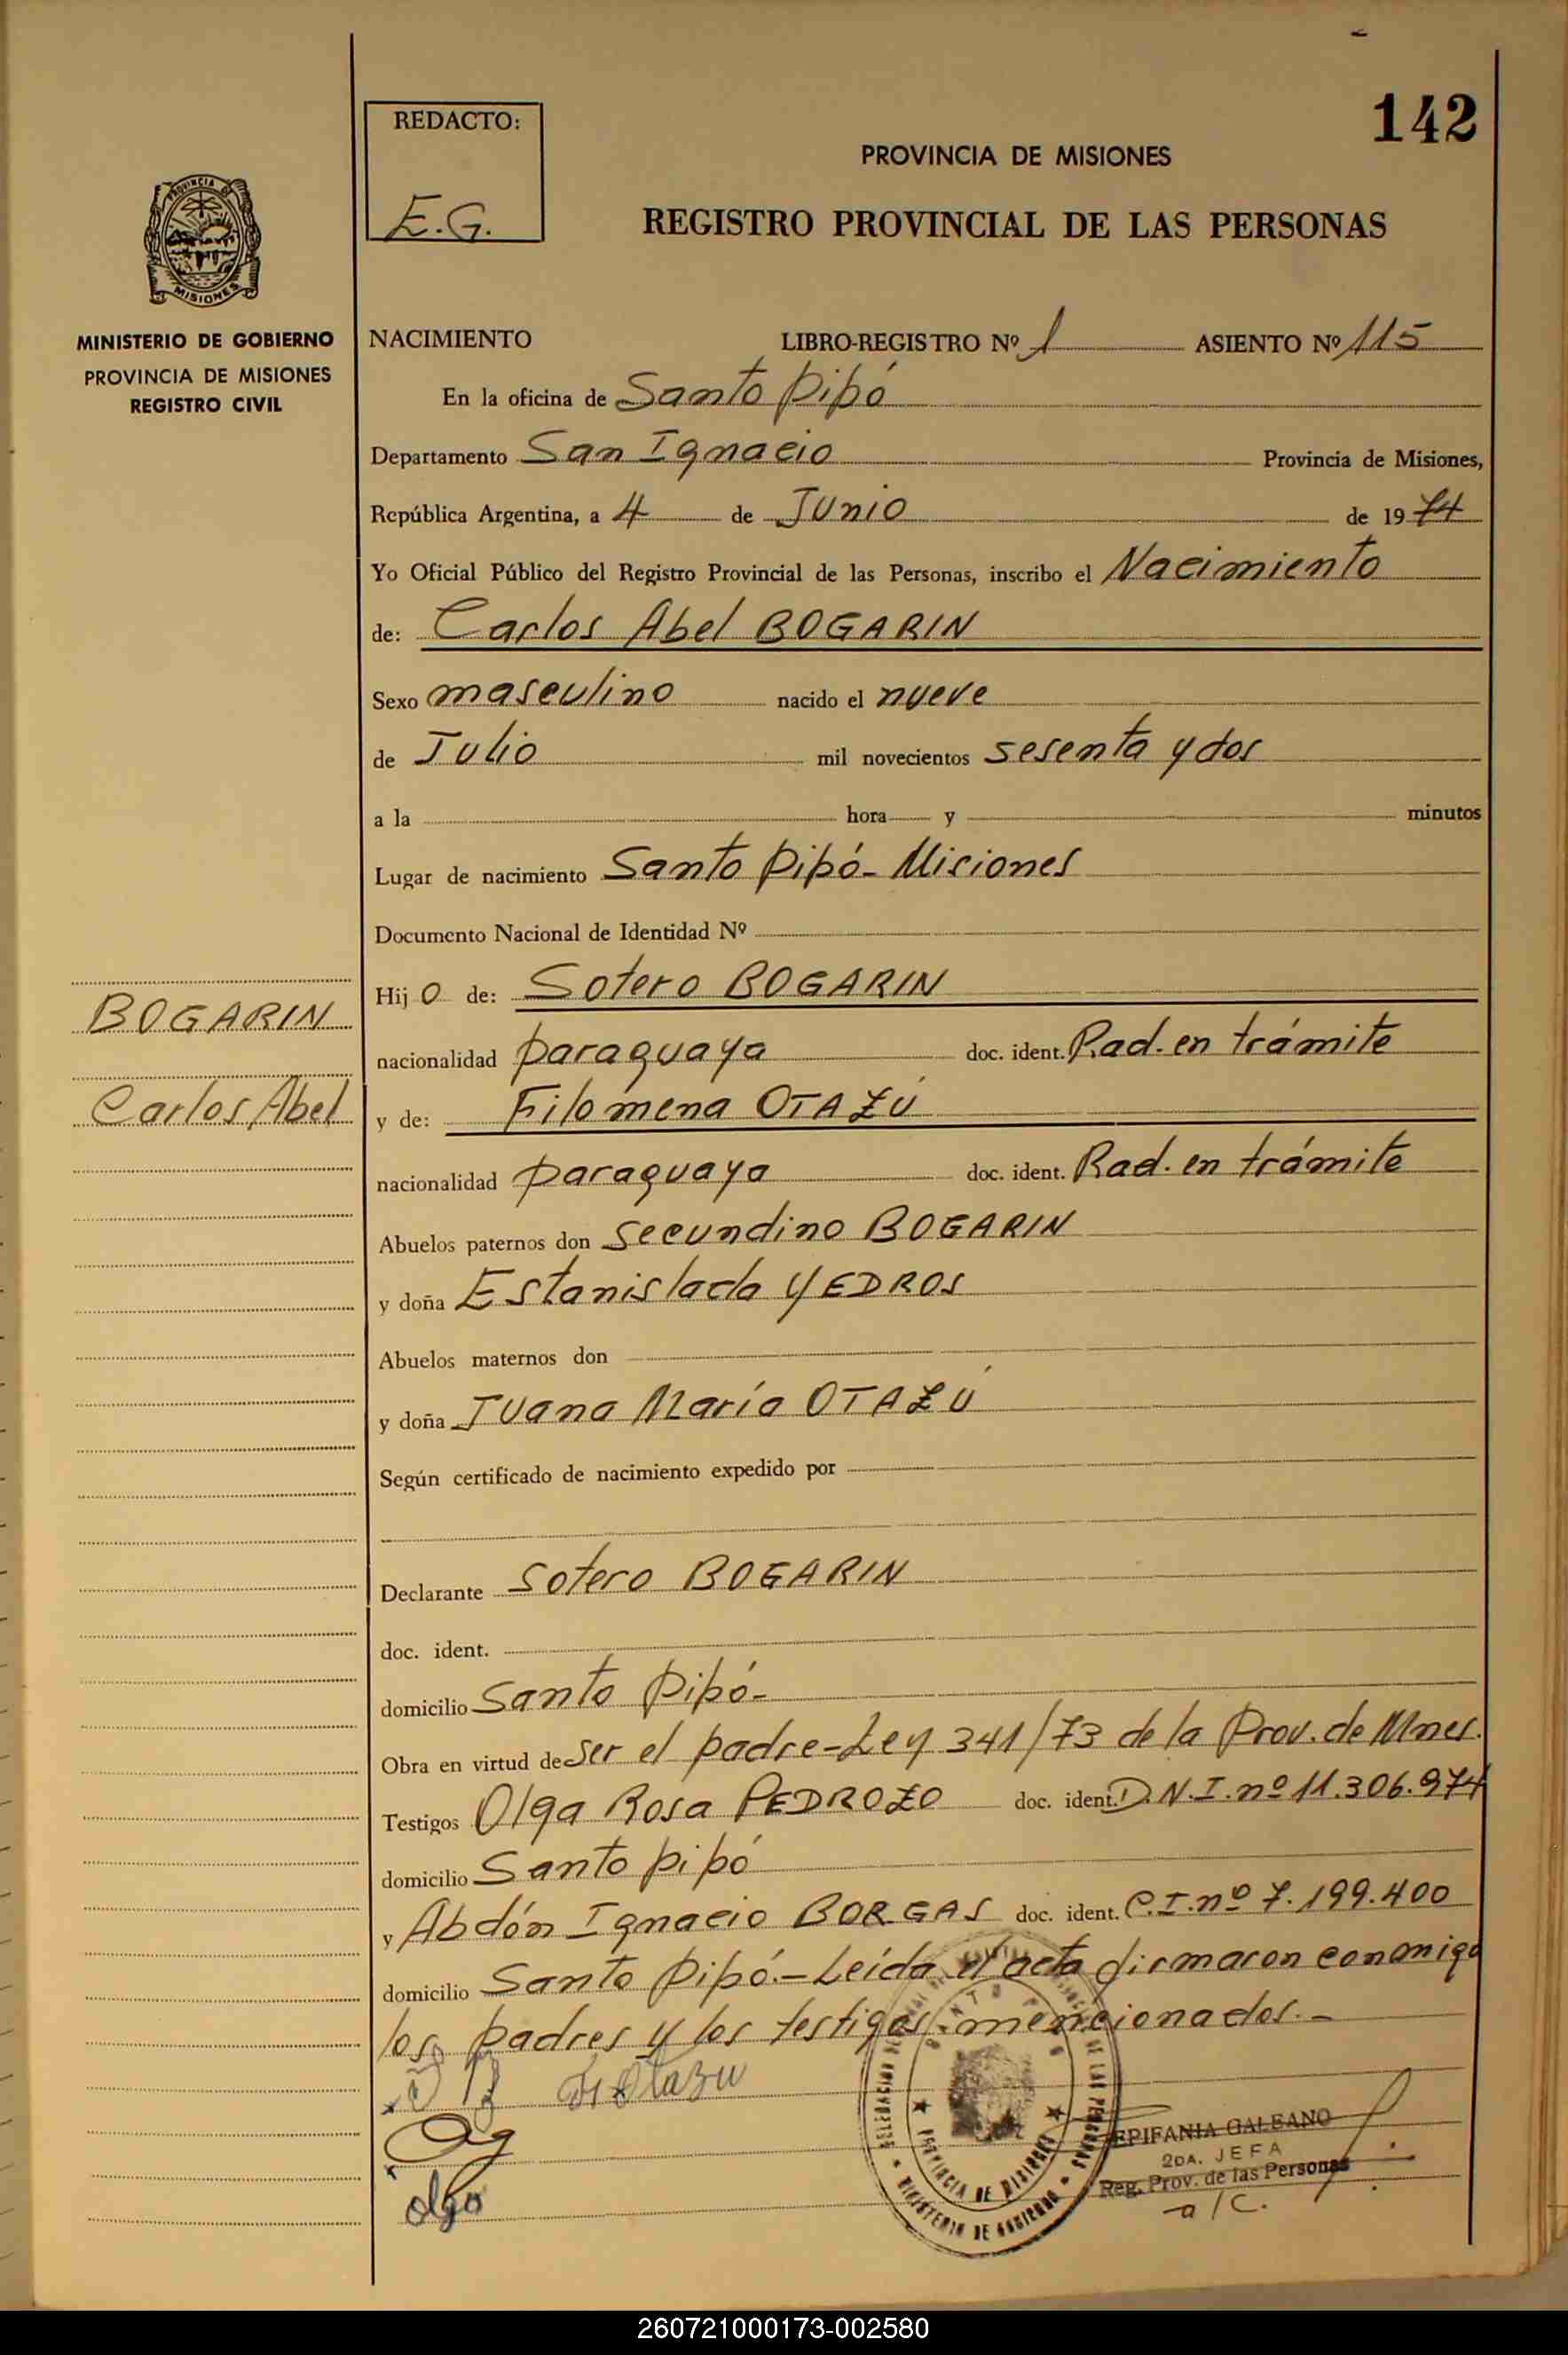 142
REDACTO:
E.G.
PROVINCIA DE MISIONES
REGISTRO PROVINCIAL DE LAS PERSONAS
PROVINCIA DE
MISIONES
MINISTERIO DE GOBIERNO
PROVINCIA DE MISIONES
REGISTRO CIVIL
NACIMIENTO LIBRO-REGISTRO Nº 1 ASIENTO Nº 115
En la oficina de Santo Pipó
Departamento San Ignacio Provincia de Misiones,
República Argentina, a 4 de Junio de 1974
Yo Oficial Público del Registro Provincial de las Personas, inscribo el Nacimiento
de: Carlos Abel BOGARIN
Sexo masculino nacido el nueve
de Julio mil novecientos sesenta y dos
a la hora y minutos
Lugar de nacimiento Santo Pipó - Misiones
Documento Nacional de Identidad Nº
Hijo de: Sotero BOGARIN
BOGARIN
nacionalidad paraguaya doc. ident. Rad. en trámite
Carlos Abel
y de: Filomena OTAZÚ
nacionalidad paraguaya doc. ident. Rad. en trámite
Abuelos paternos don Secundino BOGARIN
y doña Estanislada YEDROS
Abuelos maternos don
y doña Juana María OTAZÚ
Según certificado de nacimiento expedido por
Declarante Sotero BOGARIN
doc. ident.
domicilio Santo Pipó-
Obra en virtud de Ser el padre - Ley 341/73 de la Prov. de Mnes.
Testigos Olga Rosa PEDROZO doc. ident. D.N.I. nº 11.306.974
domicilio Santo Pipó
y Abdón Ignacio BORGAS doc. ident. C.I. nº 7.199.400
domicilio Santo Pipó.- Leída el acta firmaron conmigo
los padres y los testigos mencionados.-
Otazu
Olga
PROVINCIA DE MISIONES
MINISTERIO DE GOBIERNO
EPIFANIA GALEANO
2DA. JEFA
Reg. Prov. de las Personas
a/c.
260721000173-002580